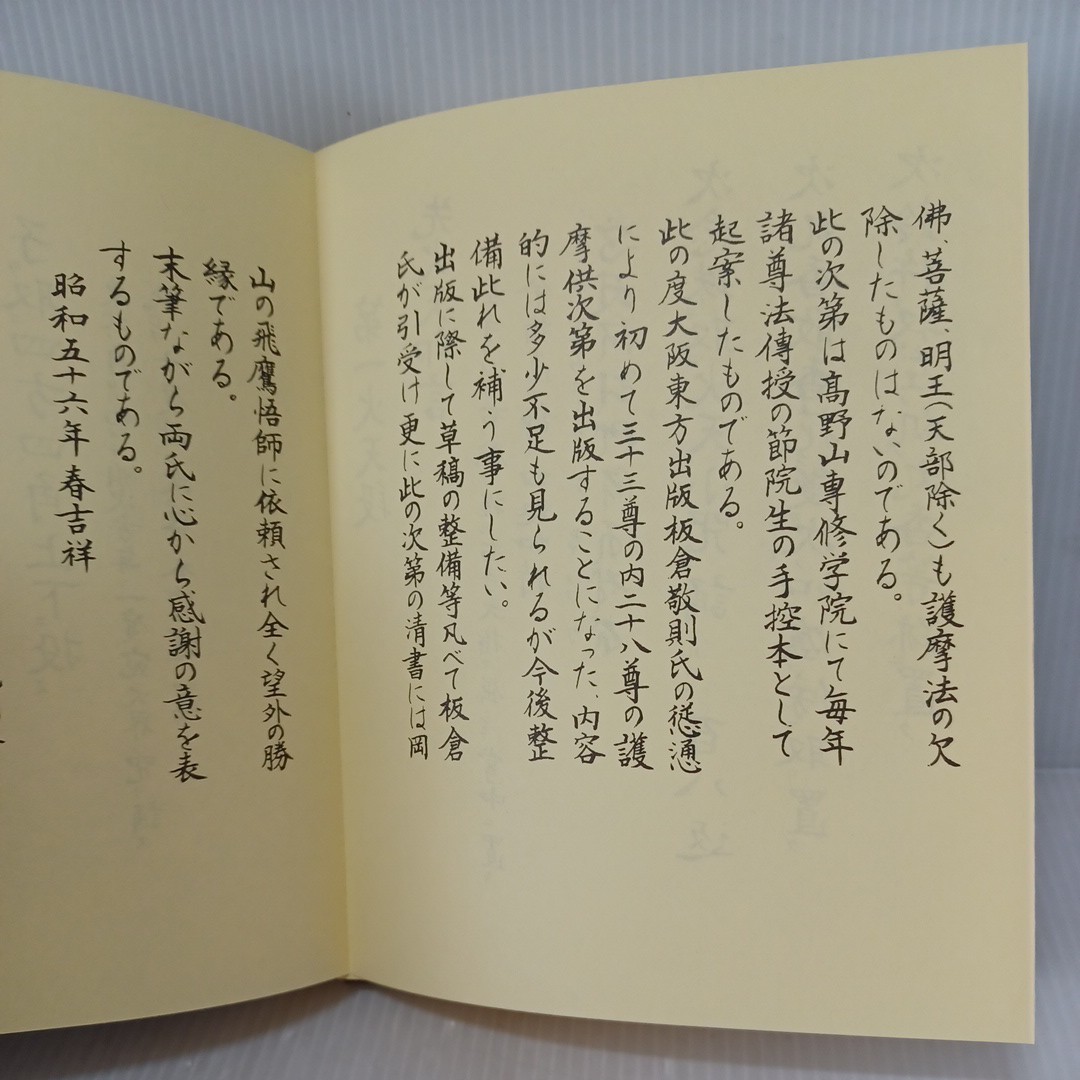 佛、菩薩、明王(天部除く)も護摩法の欠
除したものはないのである。
此の次第は高野山専修学院にて毎年
諸尊法傳授の節院生の手控本として
起案したものである。
此の度大阪東方出版板倉敬則氏の慫慂
により初めて三十三尊の内二十八尊の護
摩供次第を出版することになった、内容
的には多少不足も見られるが今後整
備此れを補う事にしたい。
出版に際して草稿の整備等凡べて板倉
氏が引受け更に此の次第の清書には岡
山の飛鷹悟師に依頼され全く望外の勝
縁である。
末筆ながら両氏に心から感謝の意を表
するものである。
昭和五十六年春吉祥